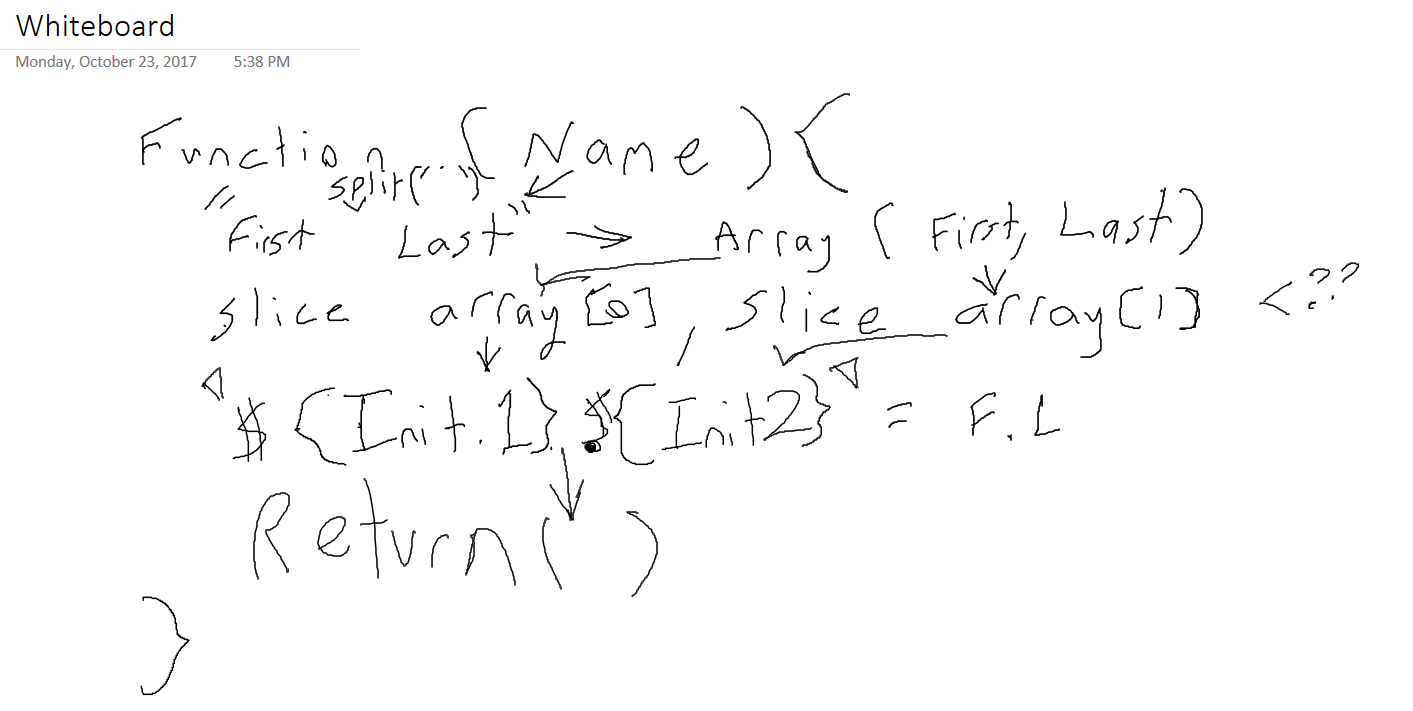 Whiteboard
Monday, October 23, 2017 5:38 PM
Function (Name){
split(" ")
"First Last" → Array (First, Last)
slice array[0], slice array[1] <??
${Init.1}.${Init2} = F.L
Return( )
}